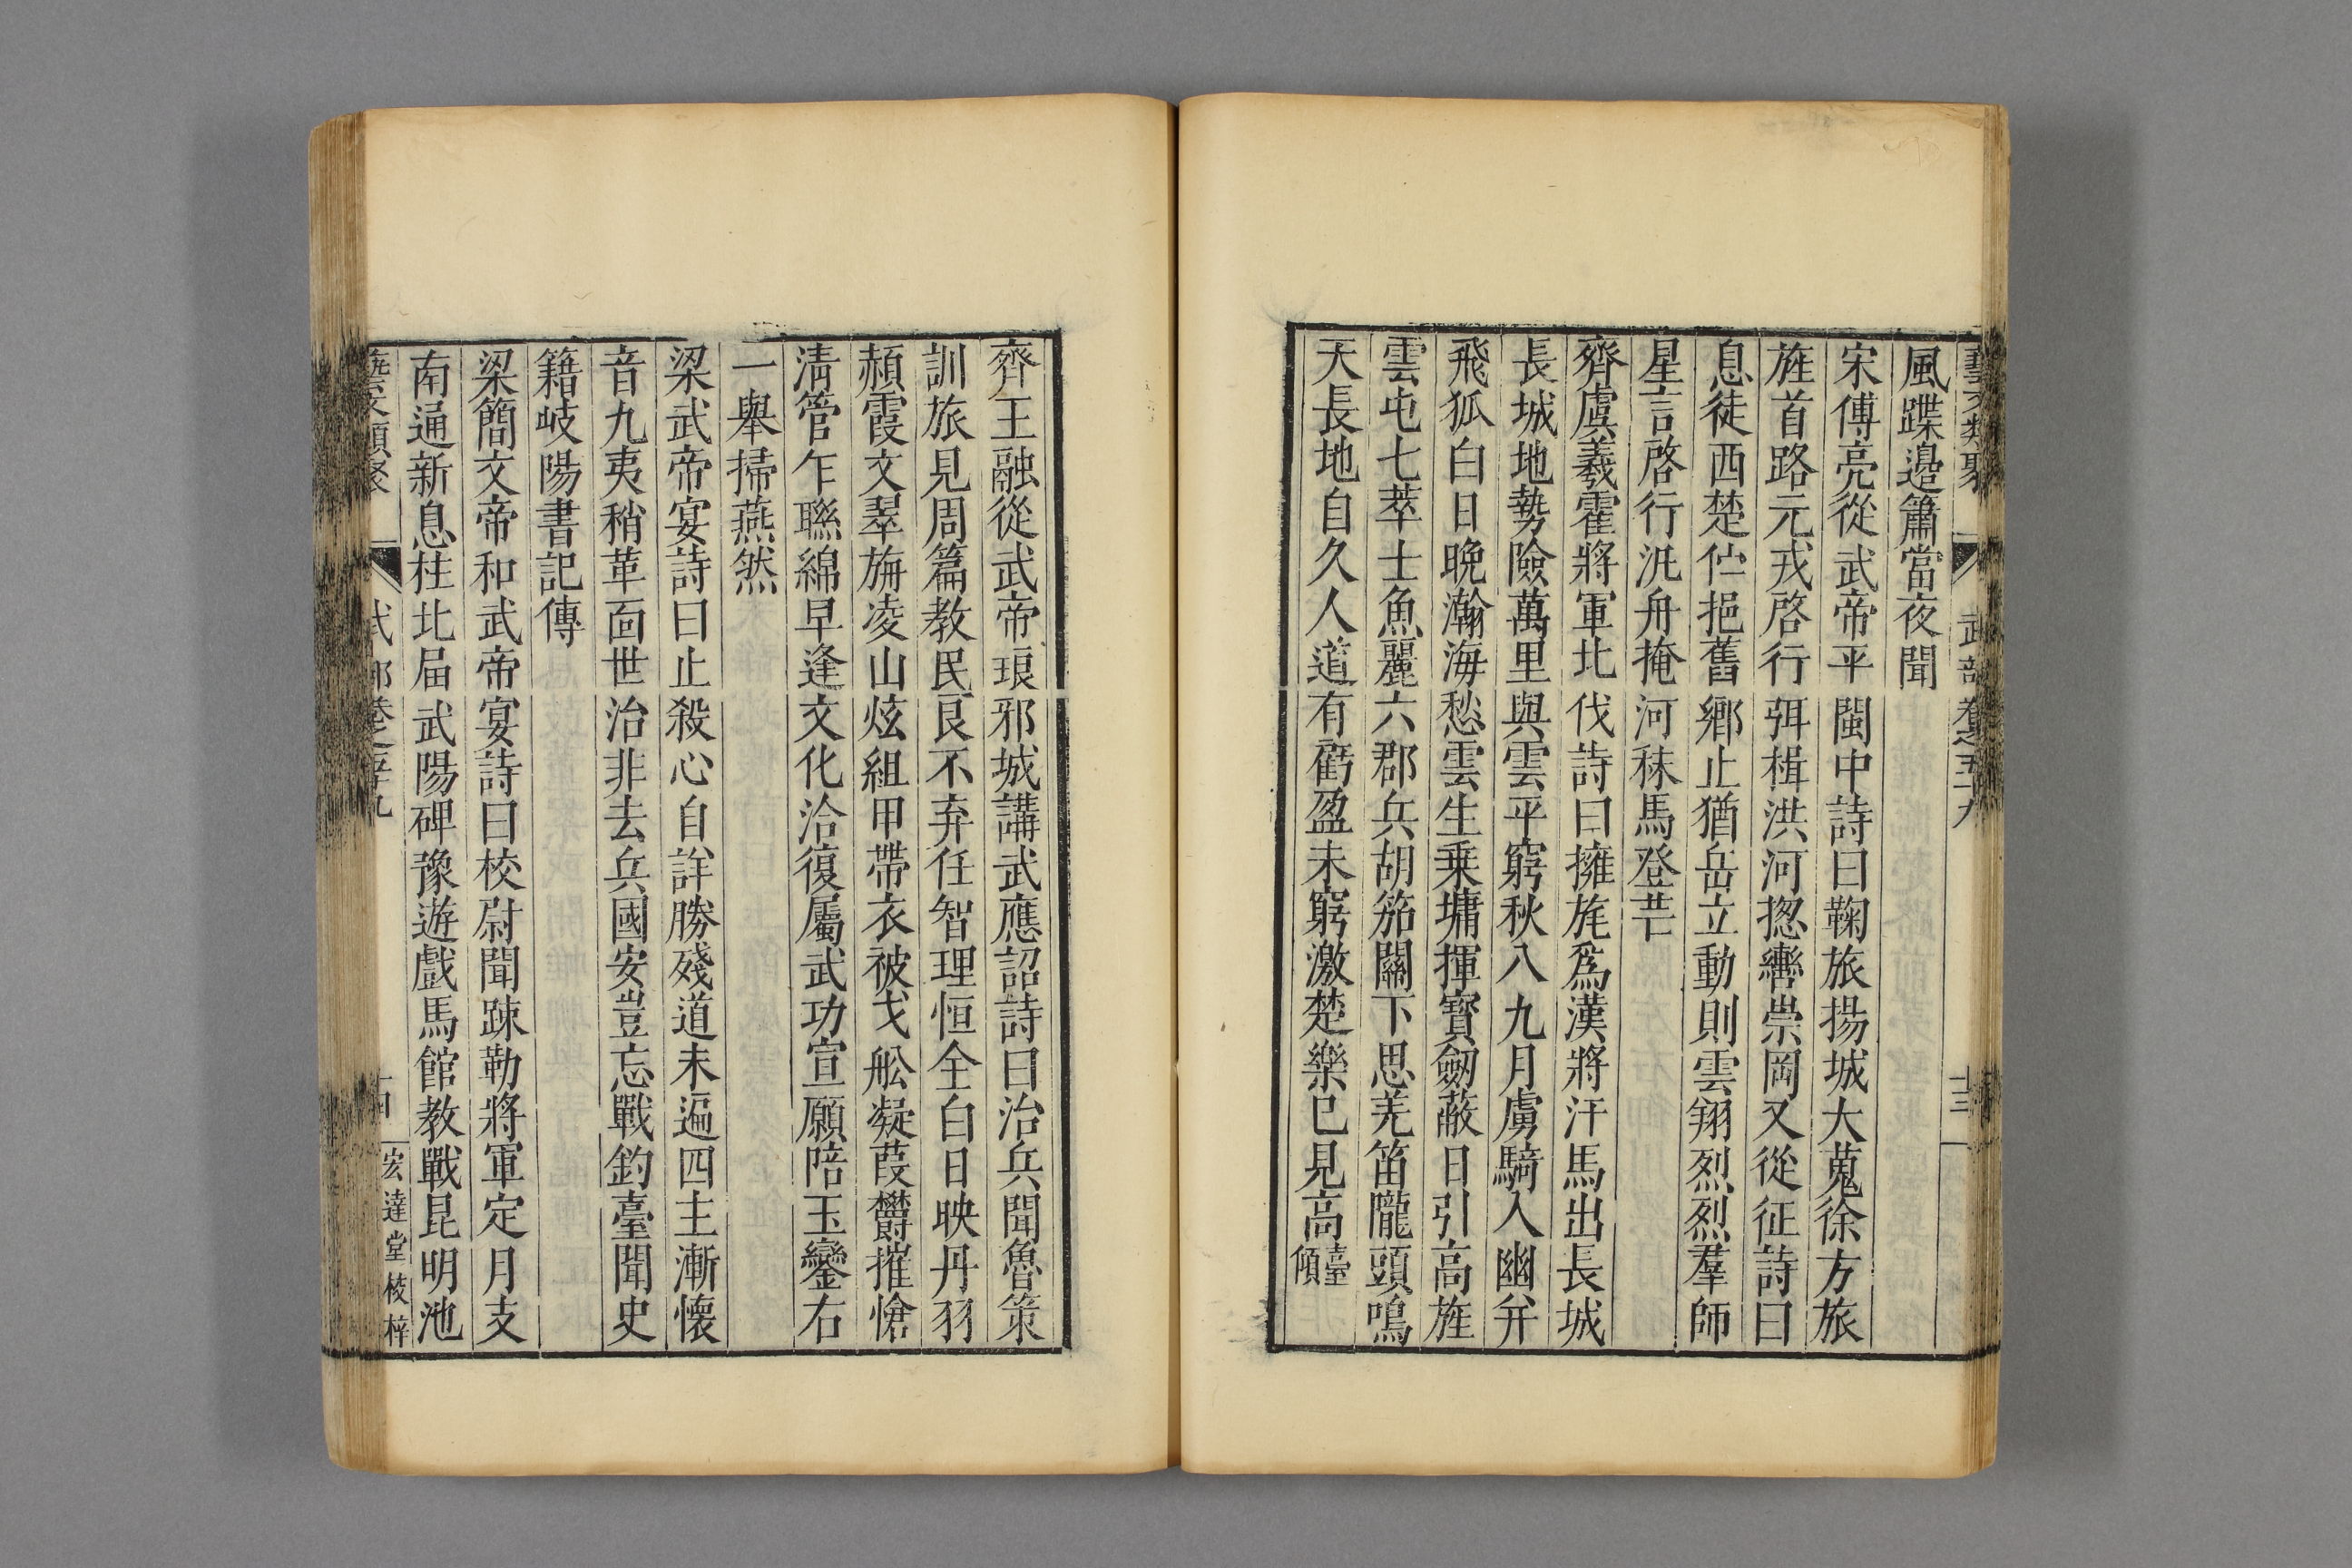 藝文類聚 武部卷之五十九 十三
風蹀邉簫當夜聞
宋傅亮從武帝平閩中詩曰鞠旅揚城大蒐徐方旅
旌首路元戎啓行弭楫洪河揔轡崇岡又從征詩曰
息徒西楚伫挹舊鄉止猶岳立動則雲翔烈烈羣師
星言啓行汎舟掩河秣馬登芒
齊虞羲霍將軍北伐詩曰擁旄爲漢將汗馬出長城
長城地勢險萬里與雲平窮秋八九月虜騎入幽并
飛狐白日晚瀚海愁雲生乗墉揮寶劒蔽日引高旌
雲屯七萃士魚麗六郡兵胡笳關下思羌笛隴頭鳴
天長地自久人道有虧盈未窮激楚樂已見高臺傾
齊王融從武帝琅邪城講武應詔詩曰治兵聞魯策
訓旅見周篇教民良不弃任智理恒全白日映丹羽
頳霞文翠旃凌山炫組甲帶衣被戈舩凝葭欝摧愴
清管乍聮綿早逢文化洽復屬武功宣願陪玉鑾右
一舉掃燕然
梁武帝宴詩曰止殺心自詳勝殘道未遍四主漸懷
音九夷稍革面世治非去兵國安豈忘戰釣臺聞史
籍岐陽書記傳
梁簡文帝和武帝宴詩曰校尉聞踈勒將軍定月支
南通新息柱北届武陽碑豫遊戲馬館教戰昆明池
藝文類聚 武部卷之五十九 十四 宏達堂校梓